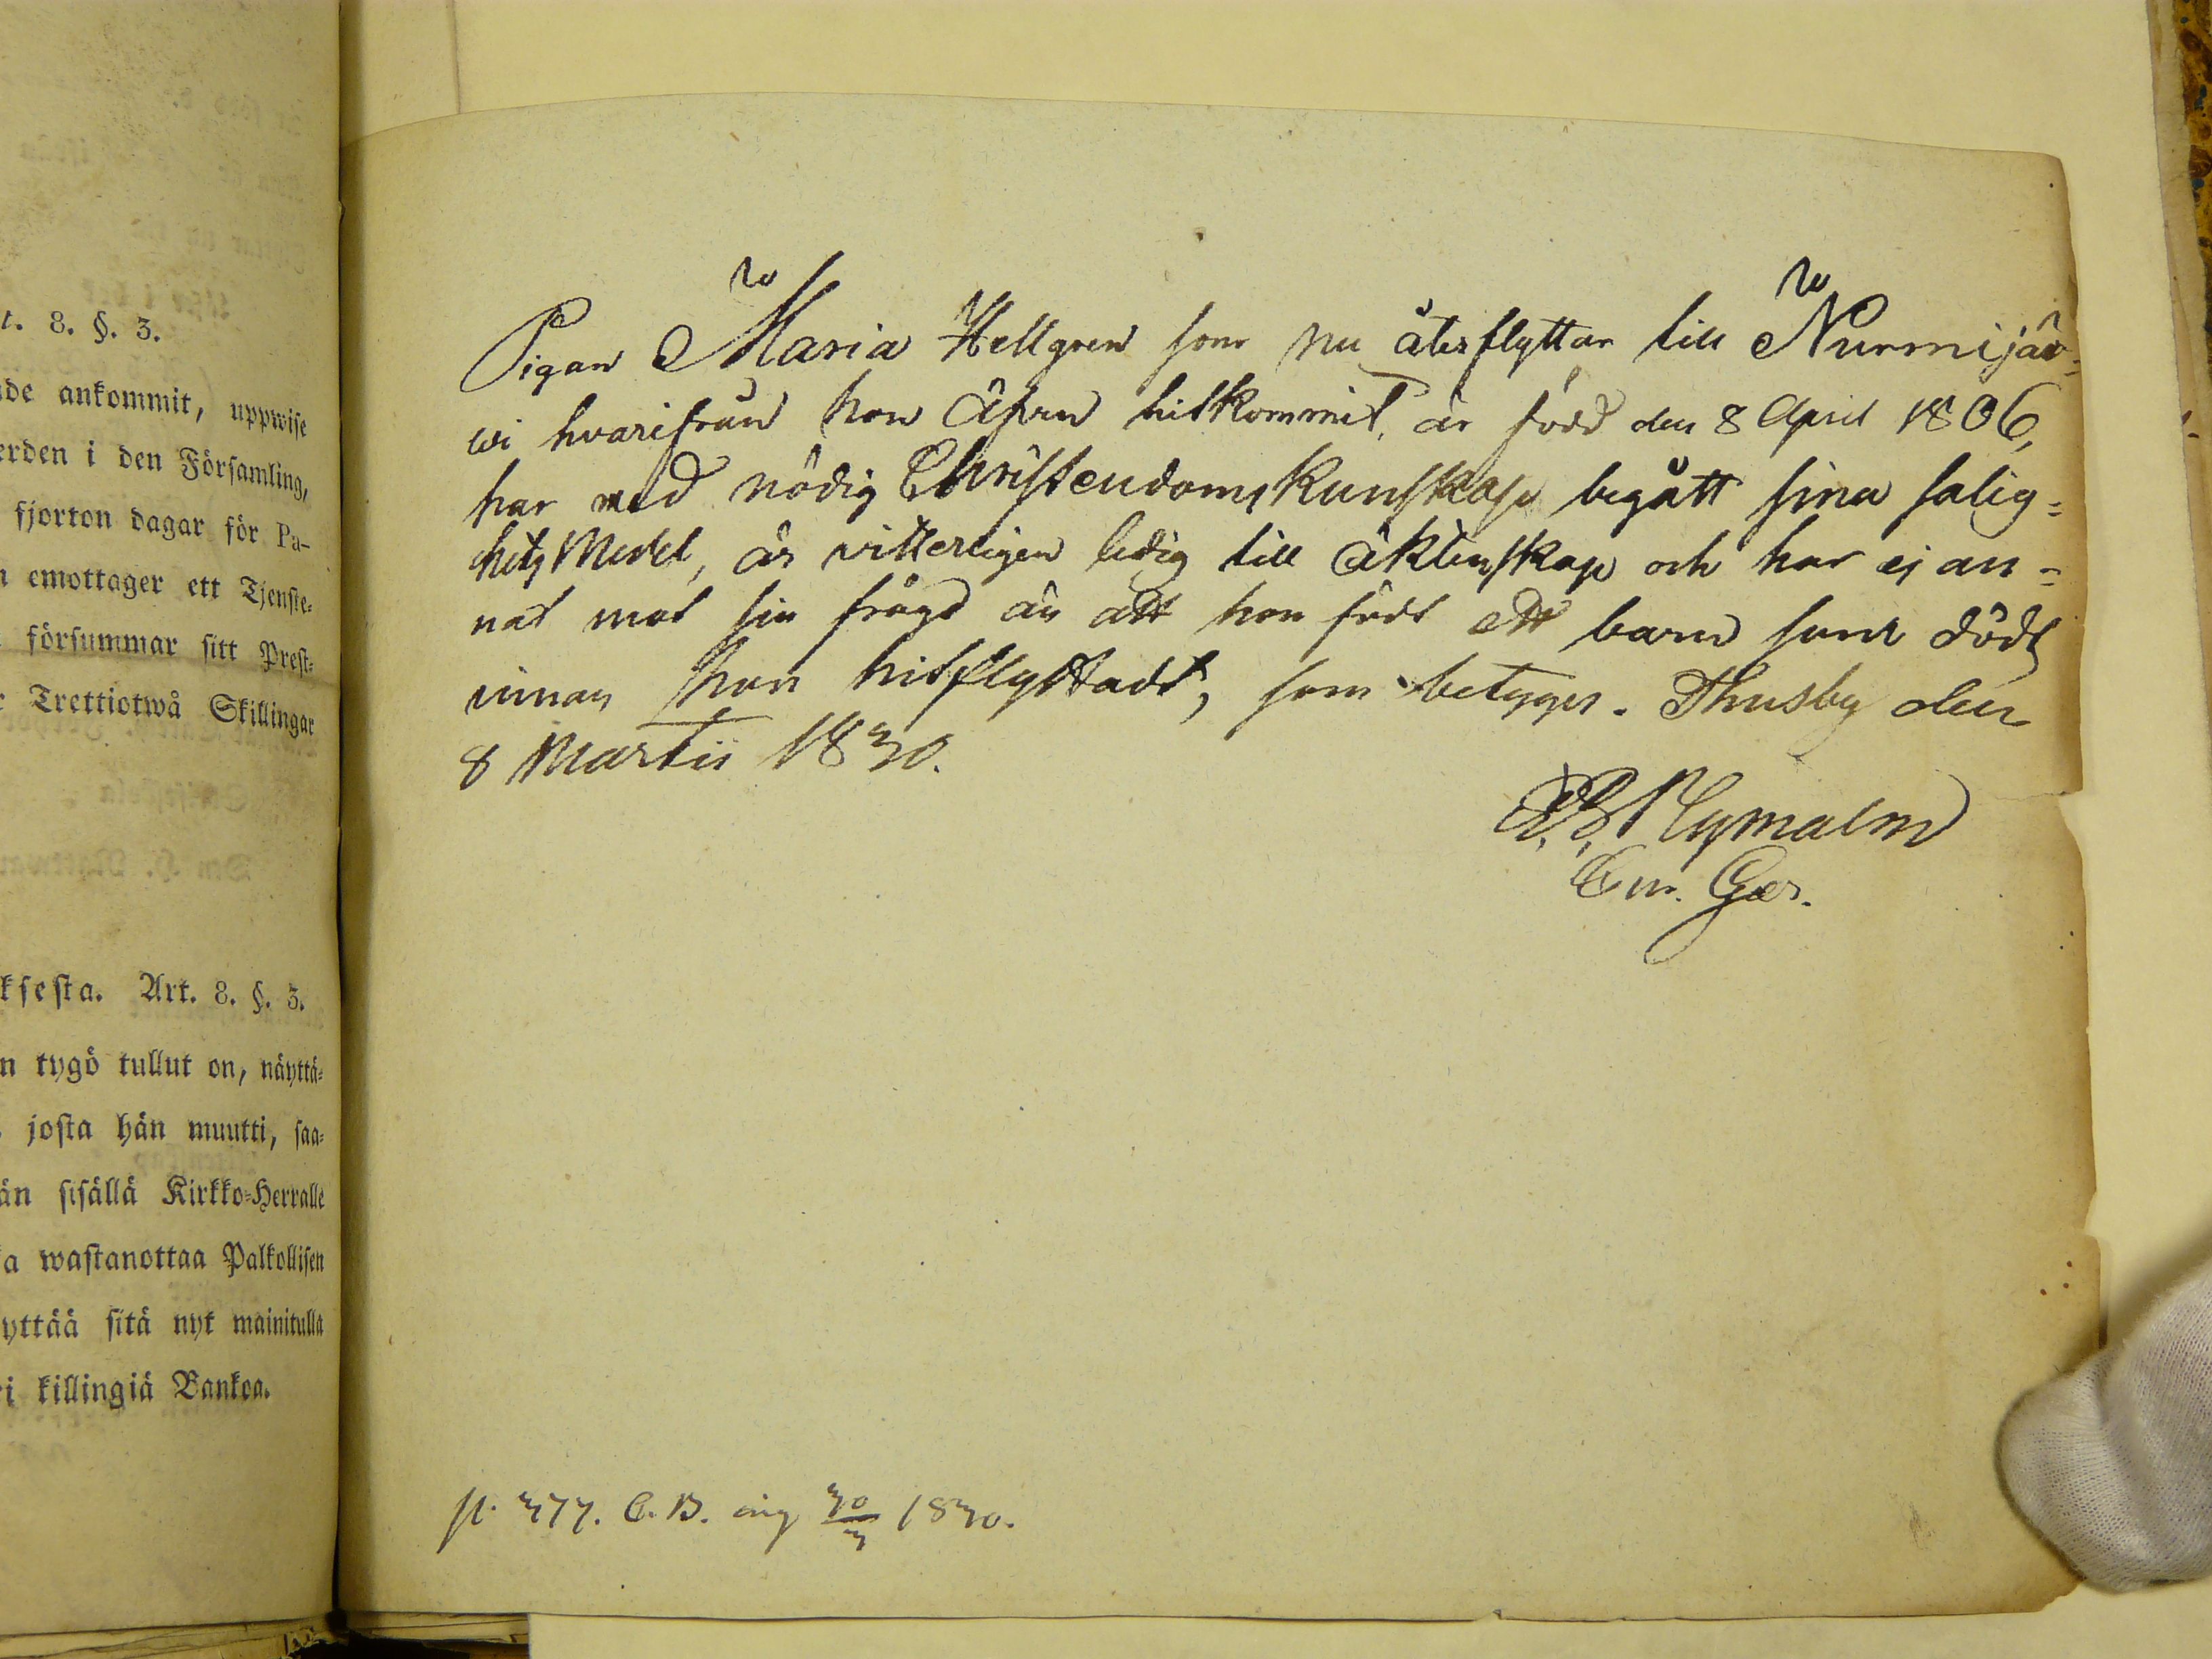 t. 8. §. 3.
ide ankommit, uppwise
erden i den Församling,
fjorton dagar för Pa-
n emottager ett Tjenste-
försummar sitt Prest-
r Trettiotwå Skillingar
ksesta. Art. 8. §. 3.
n tygö tullut on, näyttä-
josta hän muutti, saa-
än sisällä Kirkko-Herralle
a wastanottaa Palkollisen
yttää sitä nyt mainitulla
i killingiä Bankoa.
Pigan Maria Hellgren som nu återflyttar till Nurmijär-
wi hvarifrån hon äfven hitkommit, är född den 8 April 1806,
har med nödig Christendoms kunskap begått sina salig-
hets Medel, är vitterligen ledig till äktenskap och har ej an-
nat mot sin frägd än att hon födt ett barn som dödt
innan hon hitflyttadt, som betyges. Thusby den
8 Martii 1830.
Nymalm
p. 377. C.B. 30/3 1830.